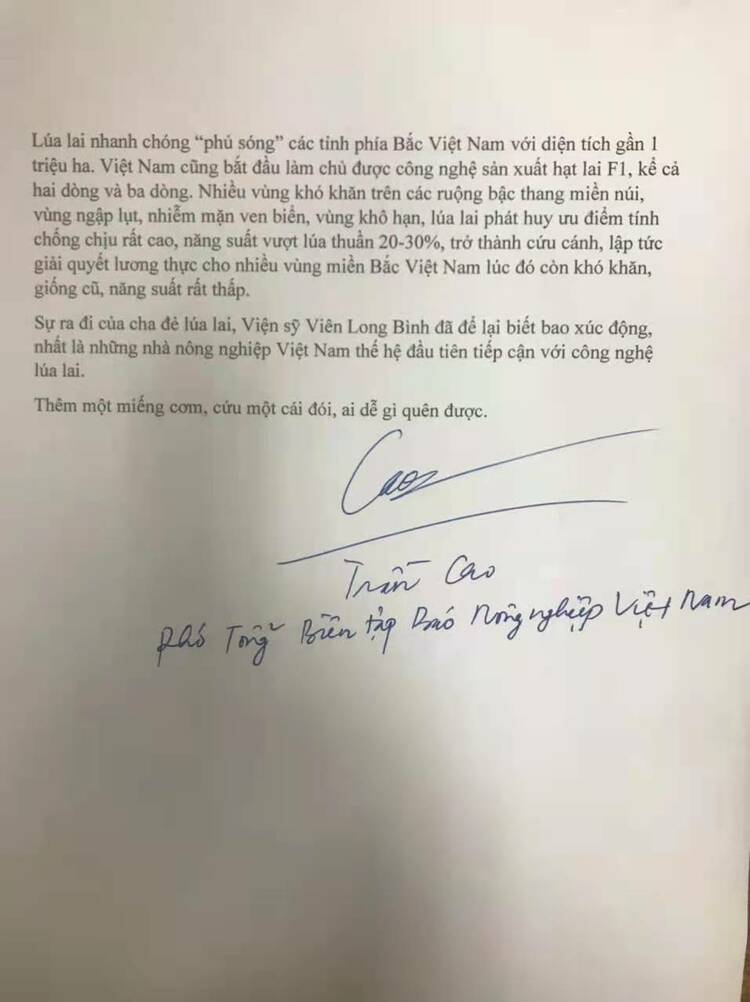 Lúa lai nhanh chóng “phủ sóng” các tỉnh phía Bắc Việt Nam với diện tích gần 1
triệu ha. Việt Nam cũng bắt đầu làm chủ được công nghệ sản xuất hạt lai F1, kể cả
hai dòng và ba dòng. Nhiều vùng khó khăn trên các ruộng bậc thang miền núi,
vùng ngập lụt, nhiễm mặn ven biển, vùng khô hạn, lúa lai phát huy ưu điểm tính
chống chịu rất cao, năng suất vượt lúa thuần 20-30%, trở thành cứu cánh, lập tức
giải quyết lương thực cho nhiều vùng miền Bắc Việt Nam lúc đó còn khó khăn,
giống cũ, năng suất rất thấp.
Sự ra đi của cha đẻ lúa lai, Viện sỹ Viên Long Bình đã để lại biết bao xúc động,
nhất là những nhà nông nghiệp Việt Nam thế hệ đầu tiên tiếp cận với công nghệ
lúa lai.
Thêm một miếng cơm, cứu một cái đói, ai dễ gì quên được.
Cao
Trần Cao
Phó Tổng Biên tập Báo Nông nghiệp Việt Nam